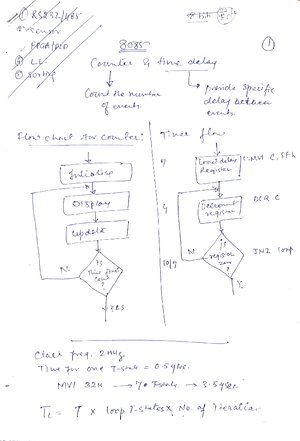 ① RS232/485
Sensor
8085
①
Counter & time delay
Count the number
of events
provide specific
delay between
events
Flow chart for counter:
Timer flow
Initialise
Display
Update
Is
Final
Count
?
N
YES
7
Load delay
Register
MVI C, FFh
4
Decrement
register
DCR C
10/7
Is
register
zero
?
N
JNZ LOOP
Y
Clock freq. 2MHz
Time for one T-state = 0.5μsec.
MVI 32H → 7 T-states → 3.5μsec
TL = T × loop T-states × No. of iteration.